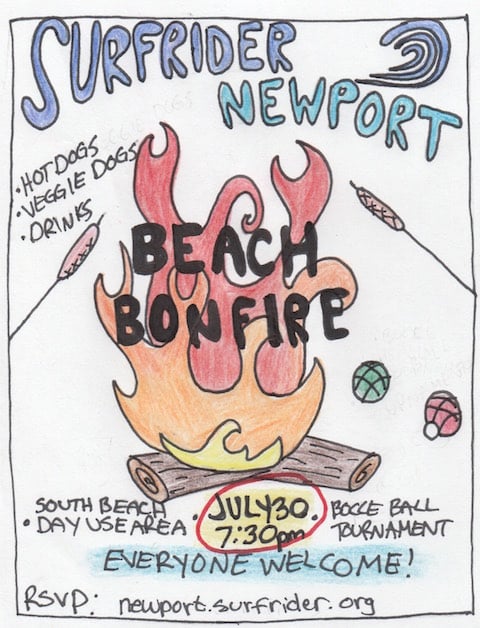 SURFRIDER
NEWPORT
• HOT DOGS
• VEGGIE DOGS
• DRINKS
BEACH
BONFIRE
SOUTH BEACH
• DAY USE AREA
• JULY 30 •
7:30pm
BOCCE BALL
TOURNAMENT
EVERYONE WELCOME!
RSVP: newport.surfrider.org